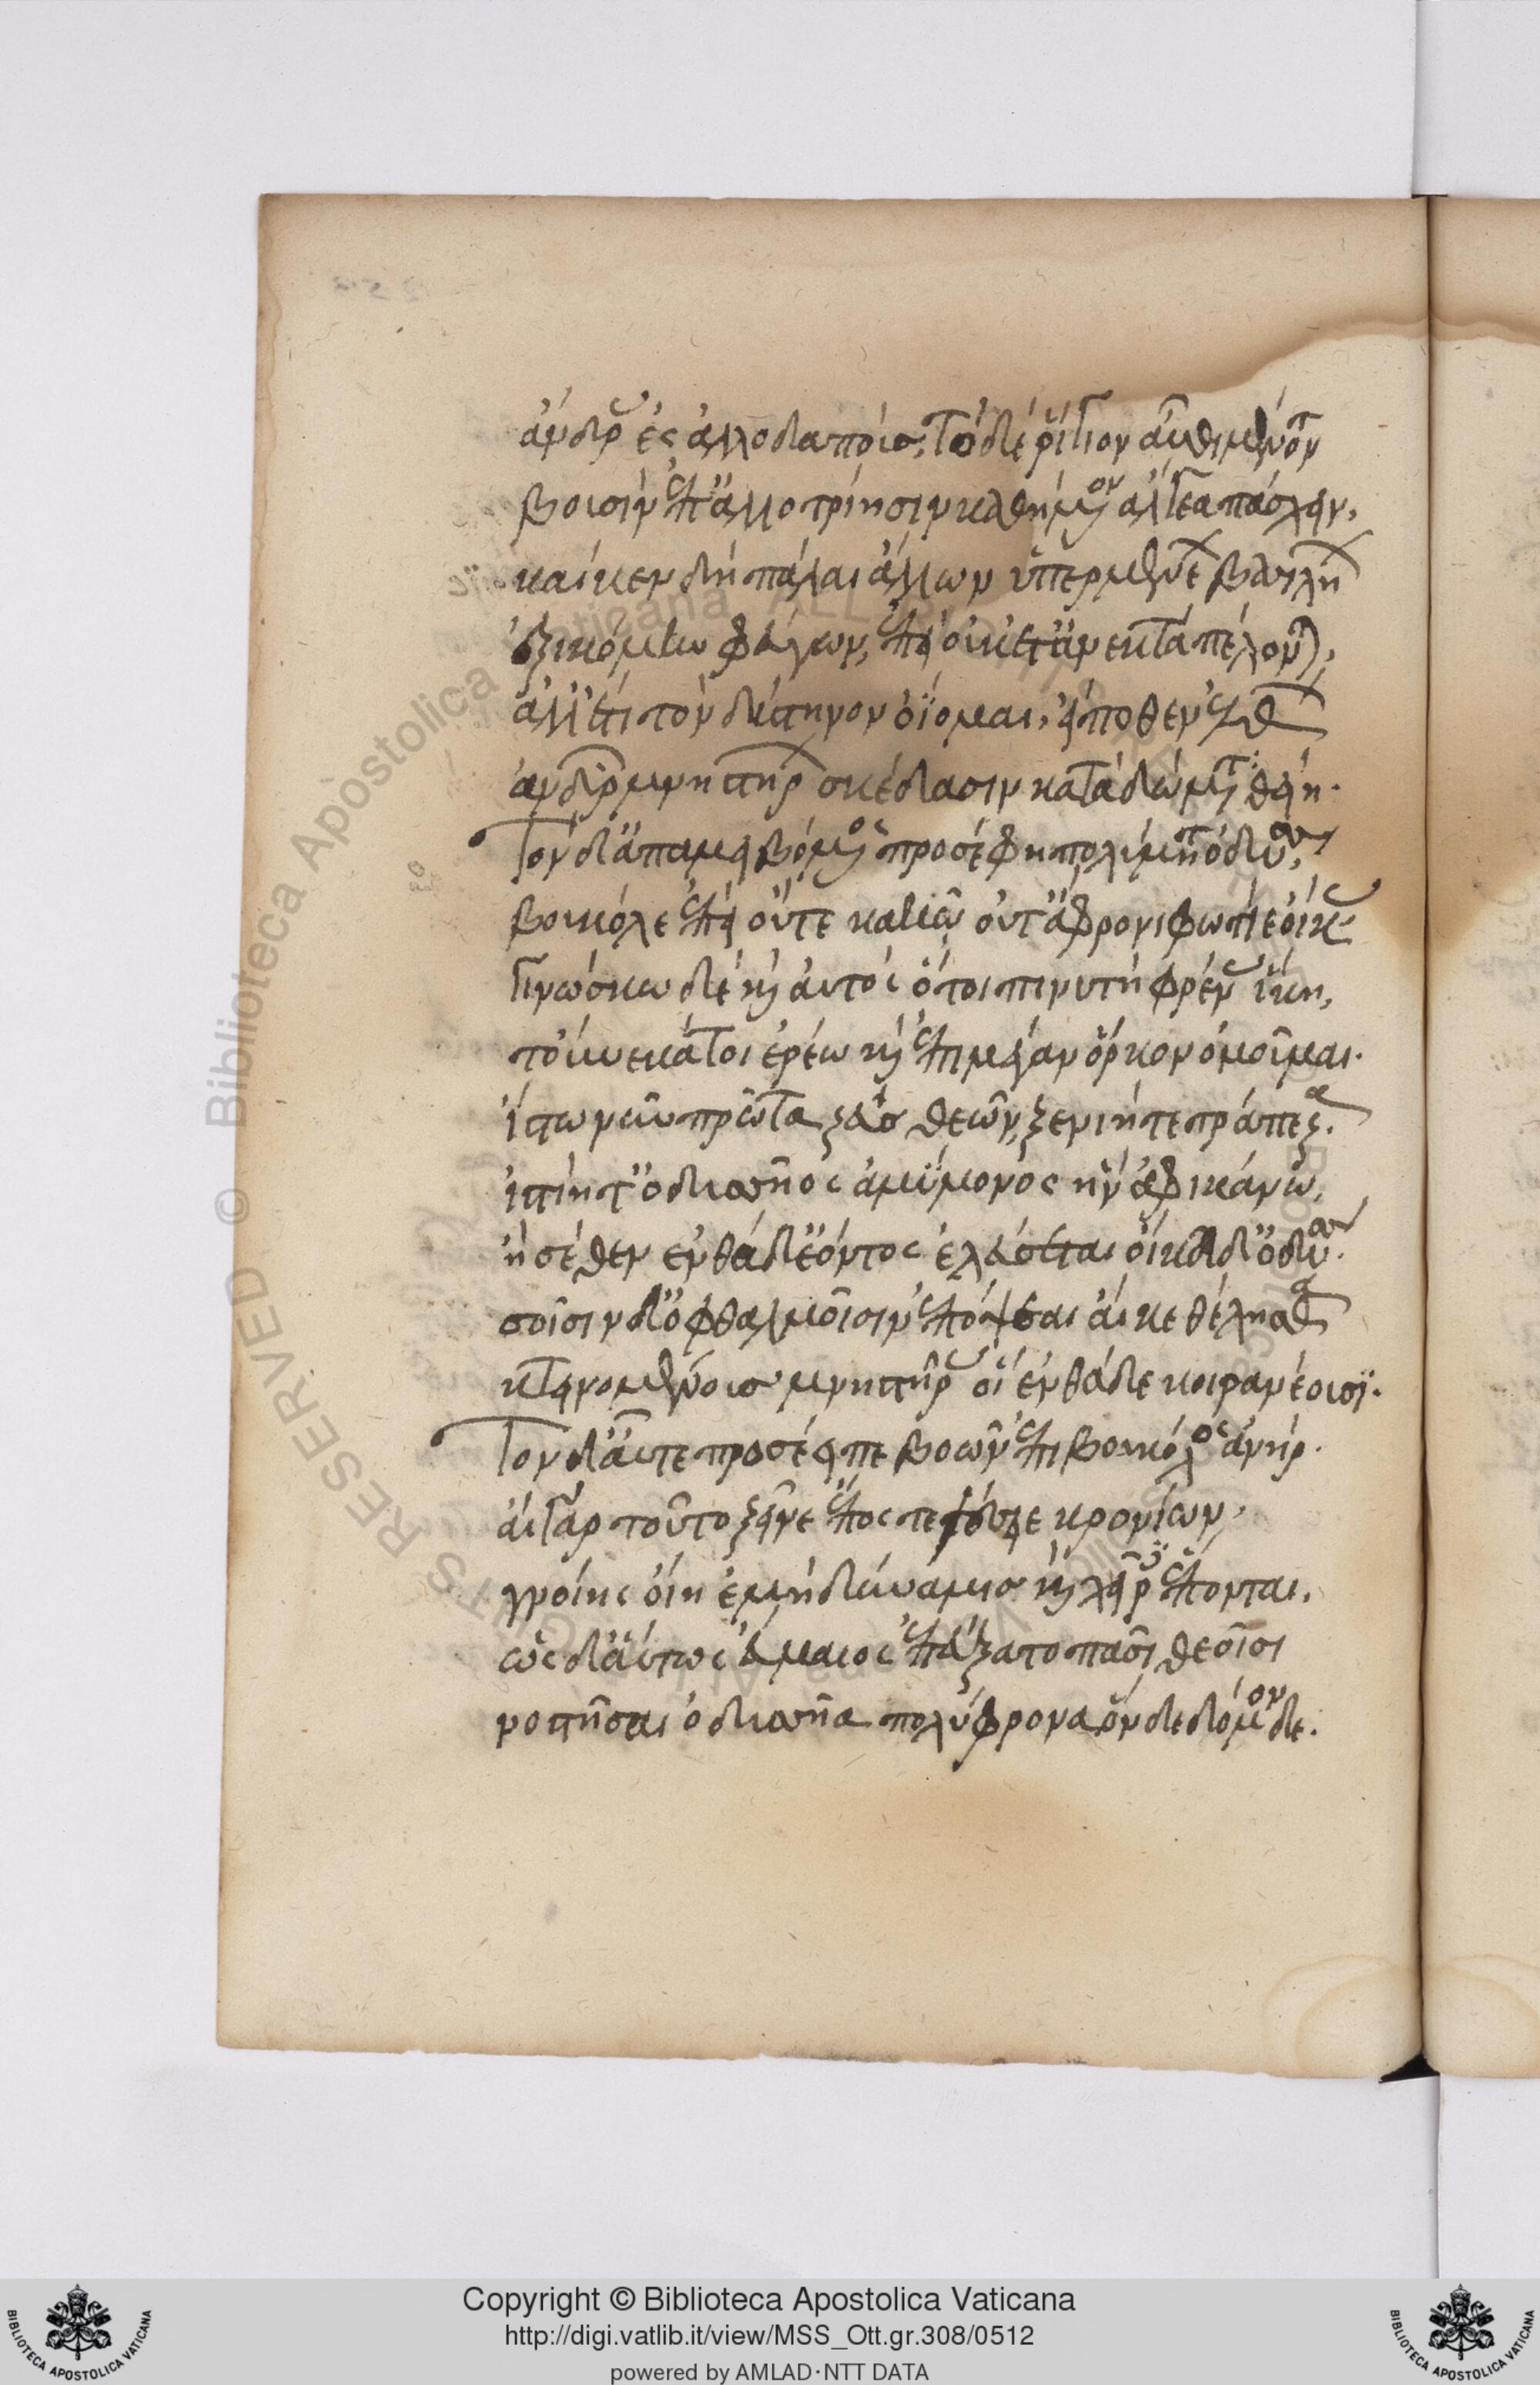 ἄνδρας ἐς ἀλλοδαπούσ, τὸ δὲ ῥίγιον αὖθι μένοντα
βουσὶν ἐπ' ἀλλοτρίησιν καθήμενον ἄλγεα πάσχειν,
καί κεν δὴ πάλαι ἄλλων ὑπερμενέων βασιλήων
ἐξικόμην φεύγων, ἐπεὶ οὐκέτ' ἀνεκτὰ πέλονται,
ἀλλ' ἔτι τὸν δύστηνον ὀΐομαι, εἴποθεν ἐλθὼν
ἀνδρῶν μνηστήρων σκέδασιν κατὰ δώματα θείη.
Τὸν δ' ἀπαμειβόμενος προσέφη πολύμητις ὀδυσσεύς,
βουκόλε ἐπεὶ οὔτε κακῷ οὔτ' ἄφρονι φωτὶ ἔοικας
Γινώσκω δὲ καὶ αὐτὸς ὅ τοι πινυτὴ φρένας ἵκει,
τοὔνεκά τοι ἐρέω καὶ ἐπὶ μέγαν ὅρκον ὀμοῦμαι.
ἴστω νῦν πρῶτα ζεὺσ θεῶν, ξενίη τε τράπεζα.
ἱστίη τ' ὀδυσῆος ἀμύμονος ἣν ἀφικάνω,
ἦ σέθεν ἐνθάδ' ἐόντος ἐλεύσεται οἴκαδ' ὀδυσσεύς.
σοῖσιν δ' ὀφθαλμοῖσιν ἐπόψεαι αἴ κε θέλησθα
κτεινομένουσ μνηστῆρας οἳ ἐνθάδε κοιρανέουσϊ.
Τὸν δ' αὖτε προσέειπε βοῶν ἐπὶ βουκόλος ἀνήρ.
αἲ γὰρ τοῦτο ξεῖνε ἔπος τελέσειε κρονίων,
γνοίης οἵη ἐμὴ δύναμισ καὶ χεῖρες ἕπονται.
ὣς δ' αὔτως εὔμαιος ἐπεύξατο πᾶσι θεοῖσι
νοστῆσαι ὀδυσῆα πολύφρονα ὅνδε δόμονδε.
Copyright © Biblioteca Apostolica Vaticana
http://digi.vatlib.it/view/MSS_Ott.gr.308/0512
powered by AMLAD·NTT DATA